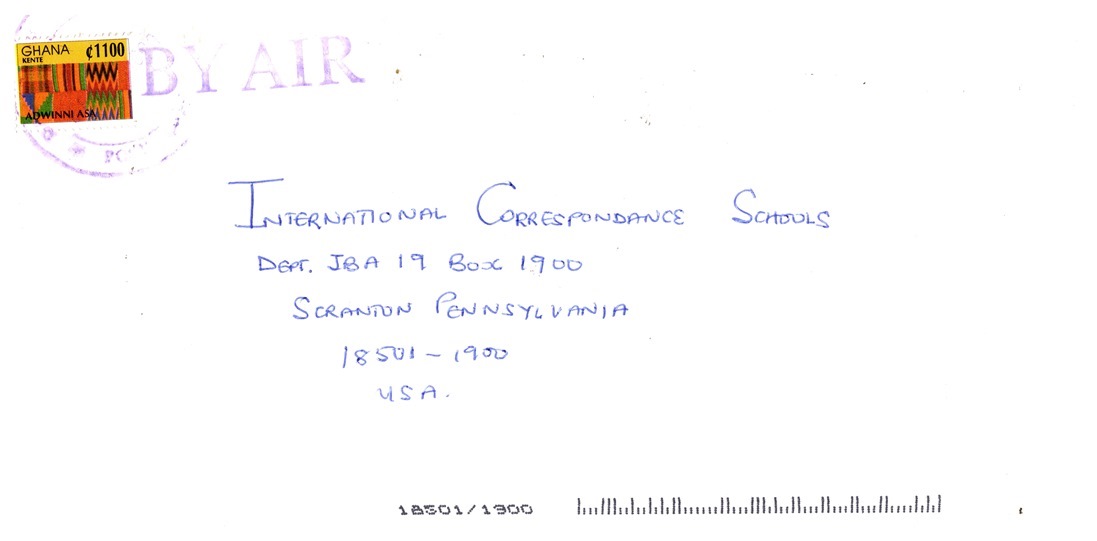 GHANA ¢1100
KENTE
ADWINNI ASA
BY AIR
INTERNATIONAL CORRESPONDANCE SCHOOLS
DEPT. JBA 19 BOX 1900
SCRANTON PENNSYLVANIA
18501-1900
USA.
18501/1900